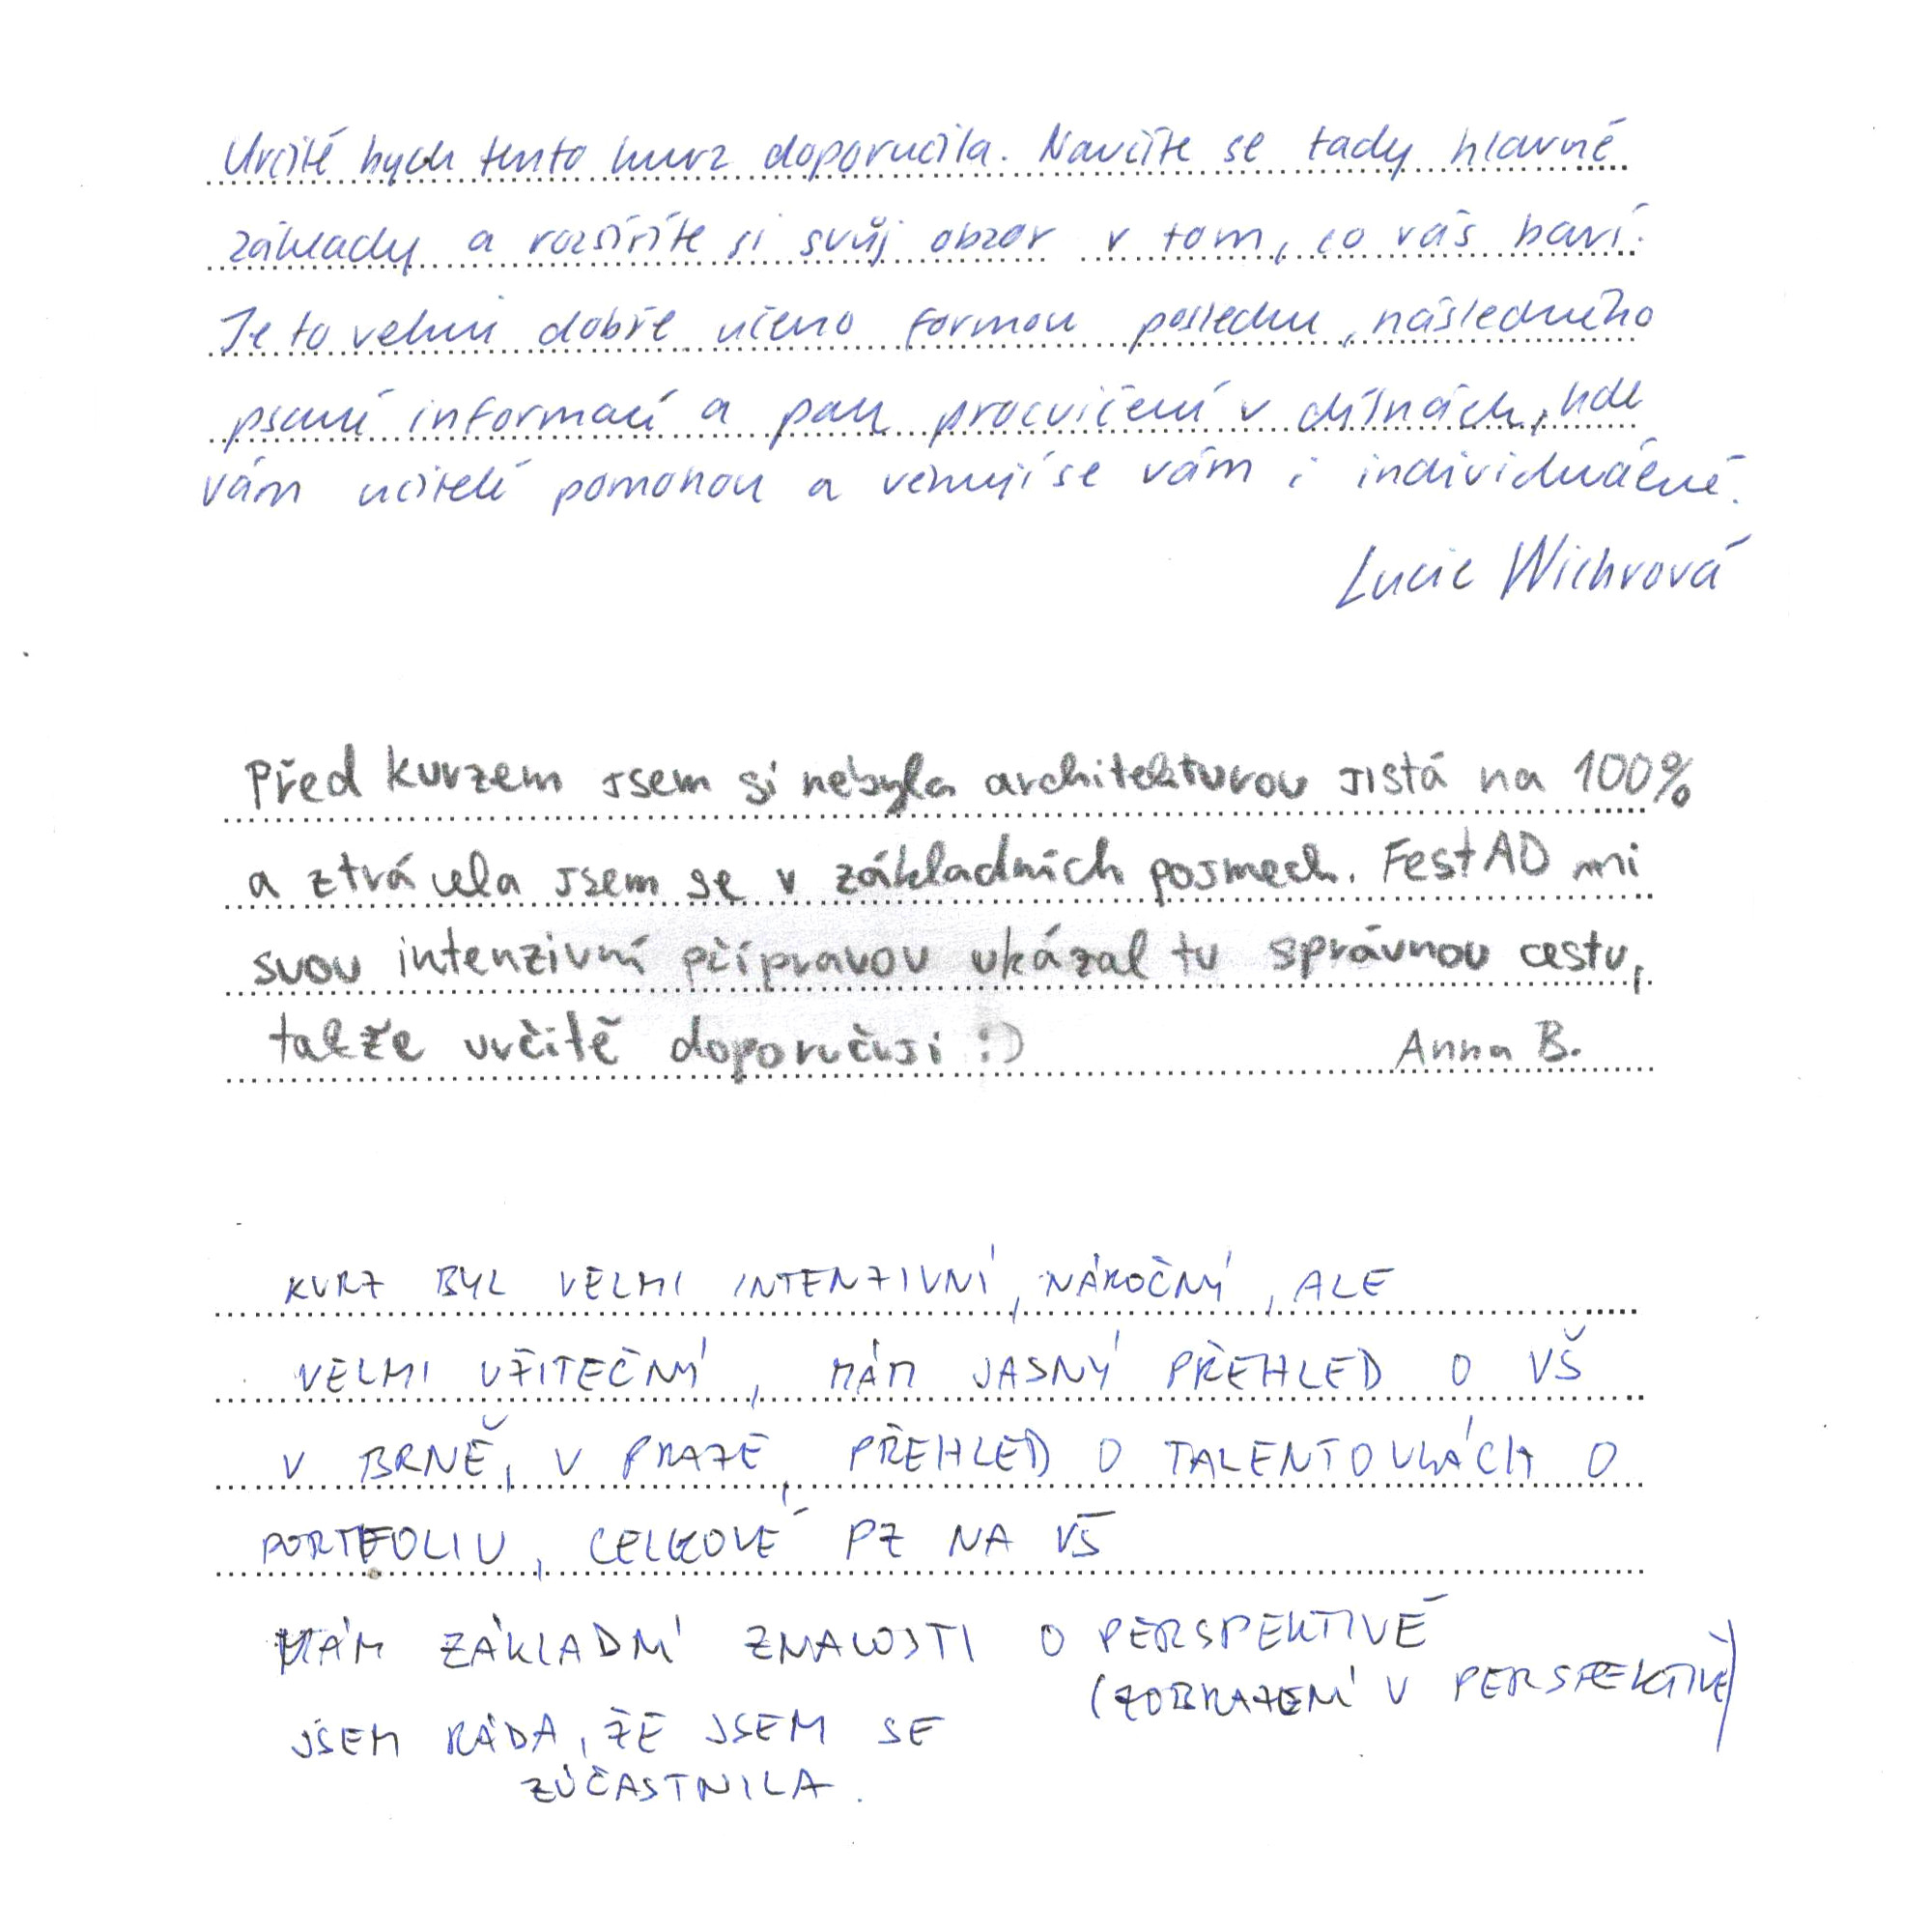 Určitě bych tento kurz doporučila. Naučíte se tady hlavně
základy a rozšíříte si svůj obzor v tom, co vás baví.
Je to velmi dobře učeno formou poslechu, následného
psaní informací a pak procvičení v dílnách, kde
vám učitelé pomohou a věnují se vám i individuálně.
Lucie Wichrová
Před kurzem jsem si nebyla architekturou jistá na 100%
a ztrácela jsem se v základních pojmech. FestAD mi
svou intenzivní přípravou ukázal tu správnou cestu,
takže určitě doporučuji :)
Anna B.
KURZ BYL VELMI INTENZIVNÍ, NÁROČNÝ, ALE
VELMI UŽITEČNÝ, MÁM JASNÝ PŘEHLED O VŠ
V BRNĚ, V PRAZE, PŘEHLED O TALENTOVKÁCH O
PORTFOLIU, CELKOVĚ PZ NA VŠ
MÁM ZÁKLADNÍ ZNALOSTI O PERSPEKTIVĚ
(ZOBRAZENÍ V PERSPEKTIVĚ)
JSEM RÁDA, ŽE JSEM SE
ZÚČASTNILA.